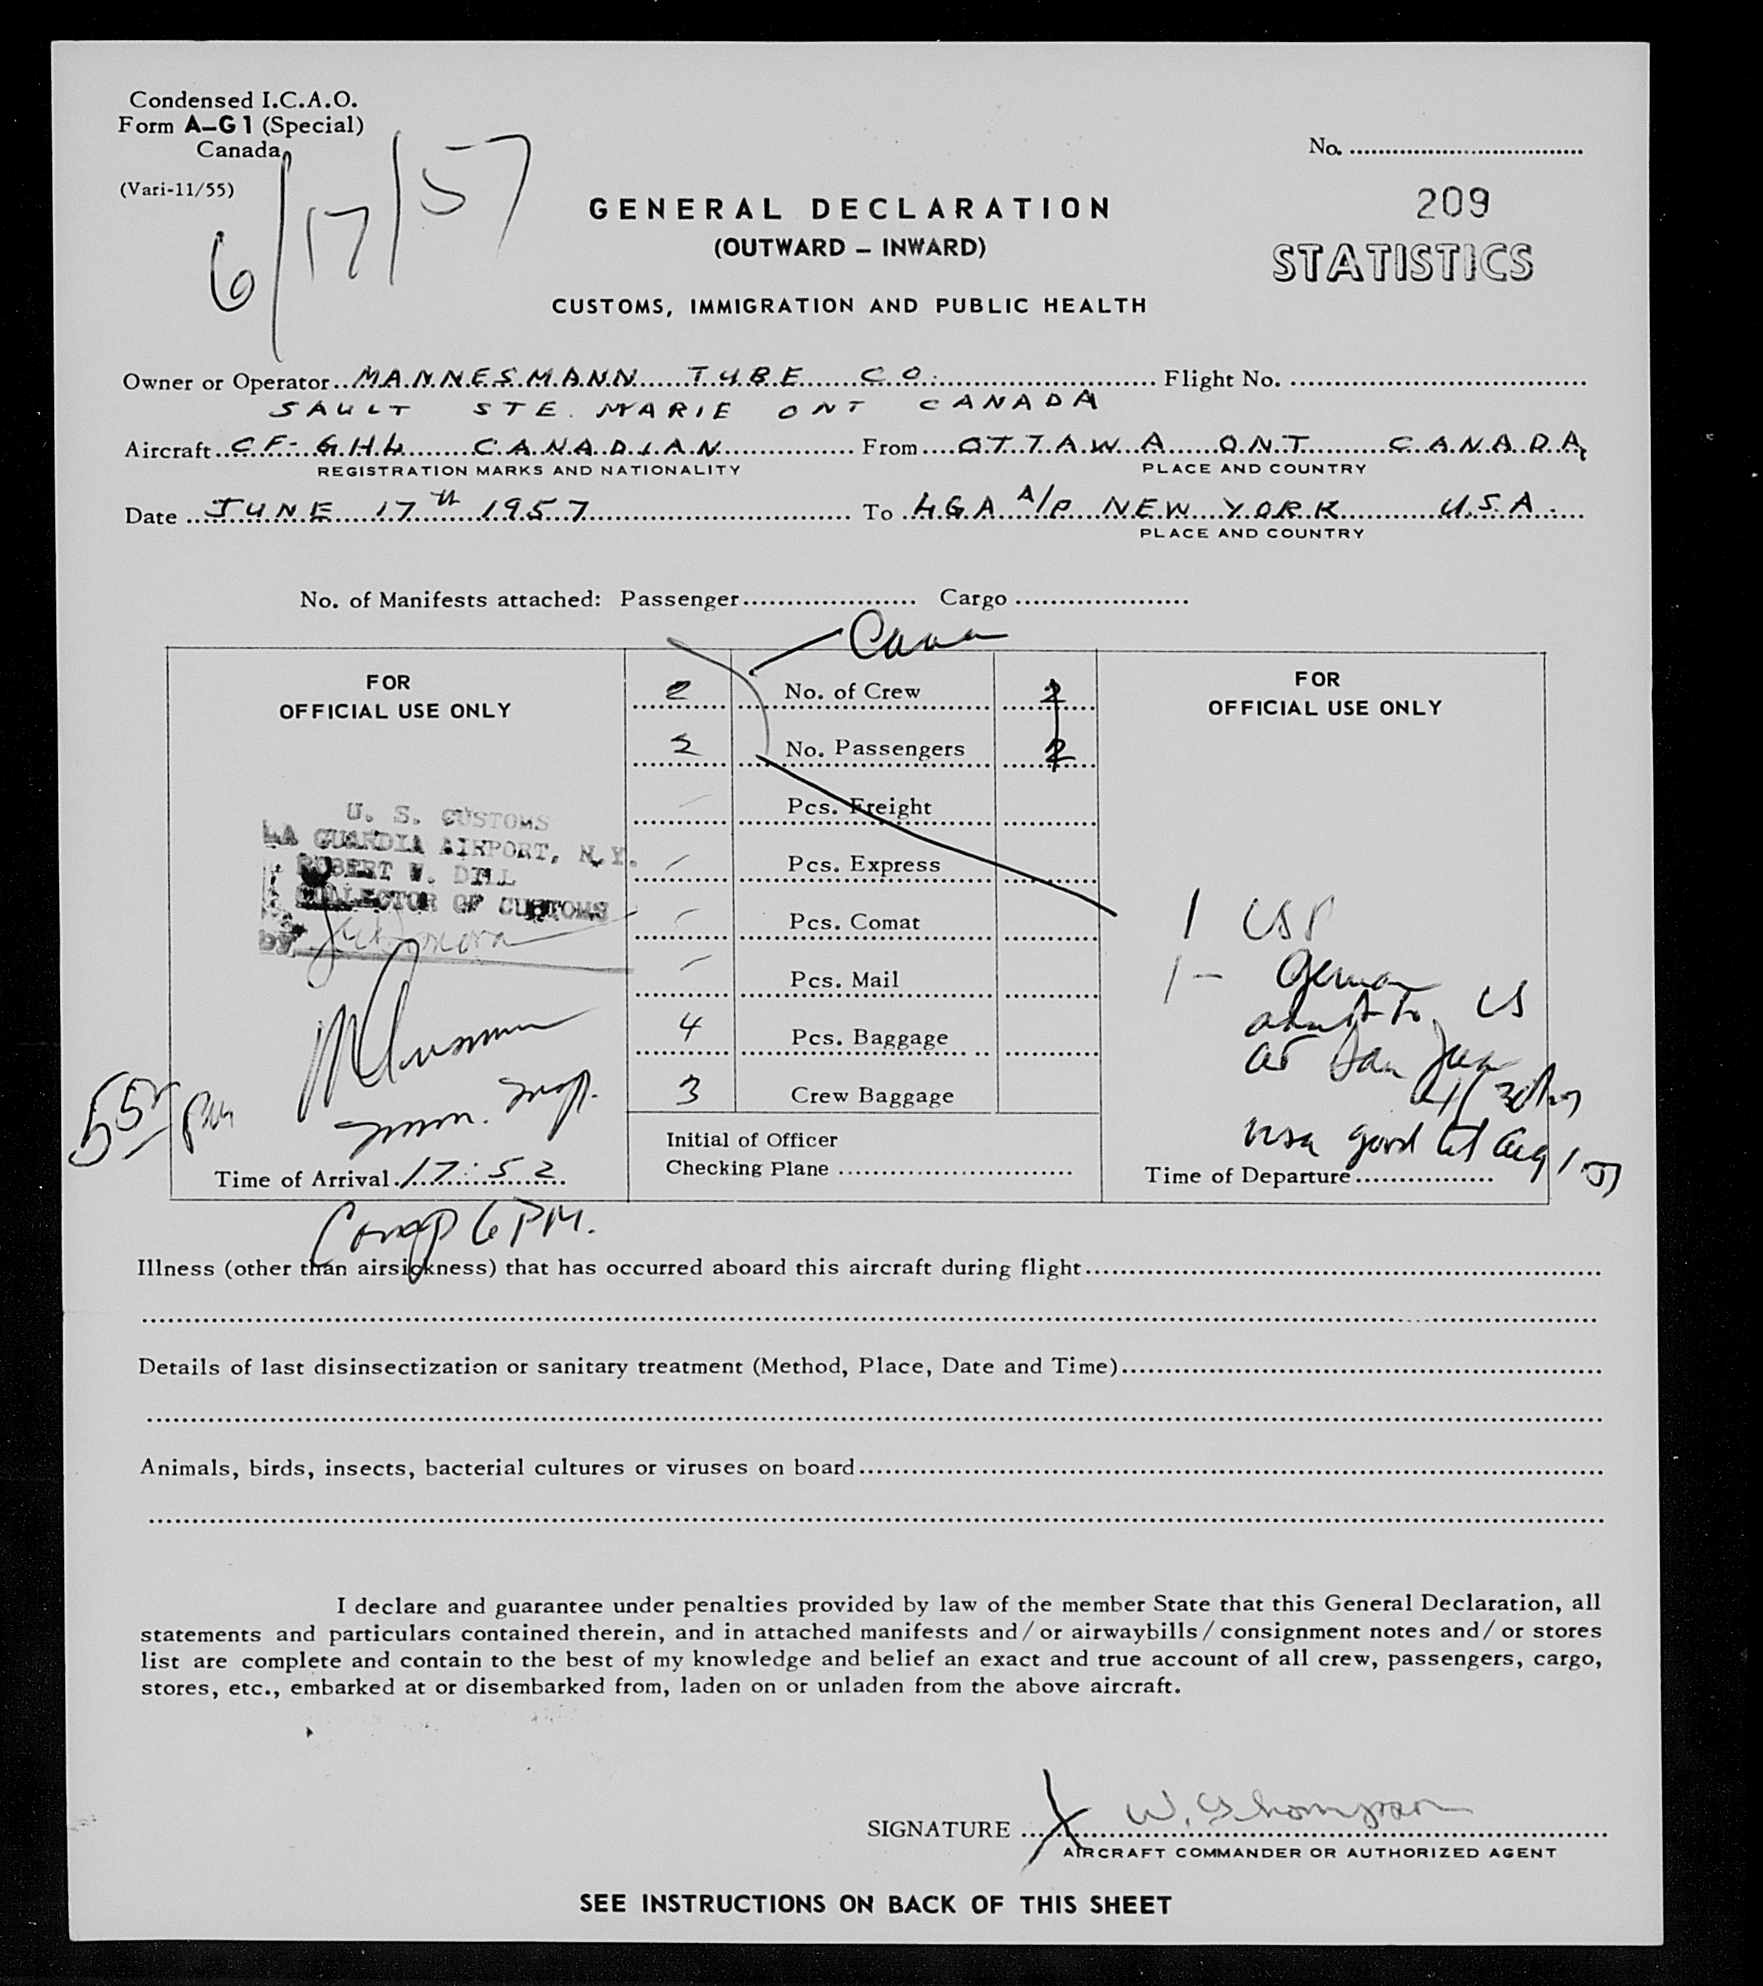 Condensed I.C.A.O.
Form A–G1 (Special)
Canada
(Vari-11/55)
6/17/57
No. ................................
209
STATISTICS
GENERAL DECLARATION
(OUTWARD – INWARD)
CUSTOMS, IMMIGRATION AND PUBLIC HEALTH
Owner or Operator MANNESMANN TUBE CO. Flight No.
SAULT STE. MARIE ONT CANADA
Aircraft CF-GHL CANADIAN From OTTAWA ONT CANADA
REGISTRATION MARKS AND NATIONALITY PLACE AND COUNTRY
Date JUNE 17th 1957 To LGA A/P NEW YORK U.S.A.
PLACE AND COUNTRY
No. of Manifests attached: Passenger Cargo
FOR
OFFICIAL USE ONLY
U. S. CUSTOMS
LA GUARDIA AIRPORT, N.Y.
ROBERT W. DILL
COLLECTOR OF CUSTOMS
by
Imm. Insp.
555 PM
Time of Arrival 17:52
Comp 6 PM.
2 No. of Crew 2
2 No. Passengers 2
Pcs. Freight
Pcs. Express
Pcs. Comat
Pcs. Mail
4 Pcs. Baggage
3 Crew Baggage
Initial of Officer
Checking Plane
FOR
OFFICIAL USE ONLY
1 US
1 – German
US
at San Juan
visa good til Aug 1 57
Time of Departure
Illness (other than airsickness) that has occurred aboard this aircraft during flight
Details of last disinsectization or sanitary treatment (Method, Place, Date and Time)
Animals, birds, insects, bacterial cultures or viruses on board
I declare and guarantee under penalties provided by law of the member State that this General Declaration, all
statements and particulars contained therein, and in attached manifests and/or airwaybills/consignment notes and/or stores
list are complete and contain to the best of my knowledge and belief an exact and true account of all crew, passengers, cargo,
stores, etc., embarked at or disembarked from, laden on or unladen from the above aircraft.
SIGNATURE X W. Thompson
AIRCRAFT COMMANDER OR AUTHORIZED AGENT
SEE INSTRUCTIONS ON BACK OF THIS SHEET